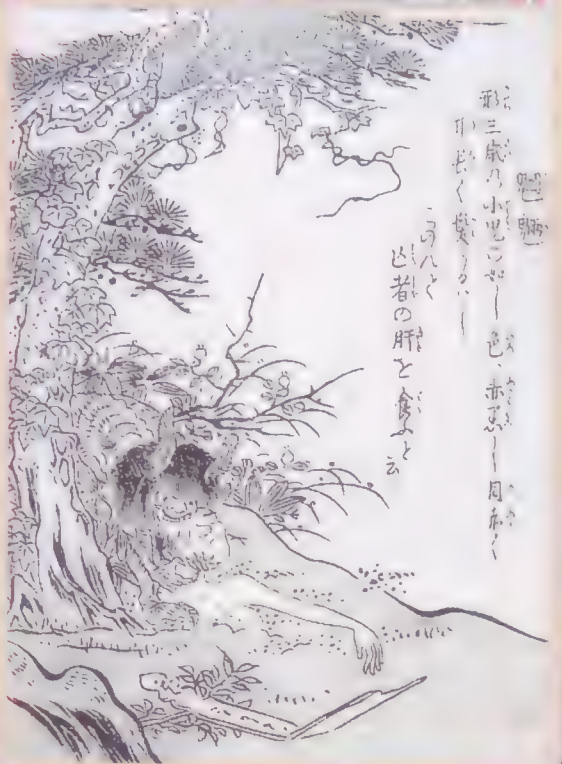 魍魎
形三歳の小児の如し色は赤黒し目赤く
耳長く髪うるハし
亡者の肝を食ふと云